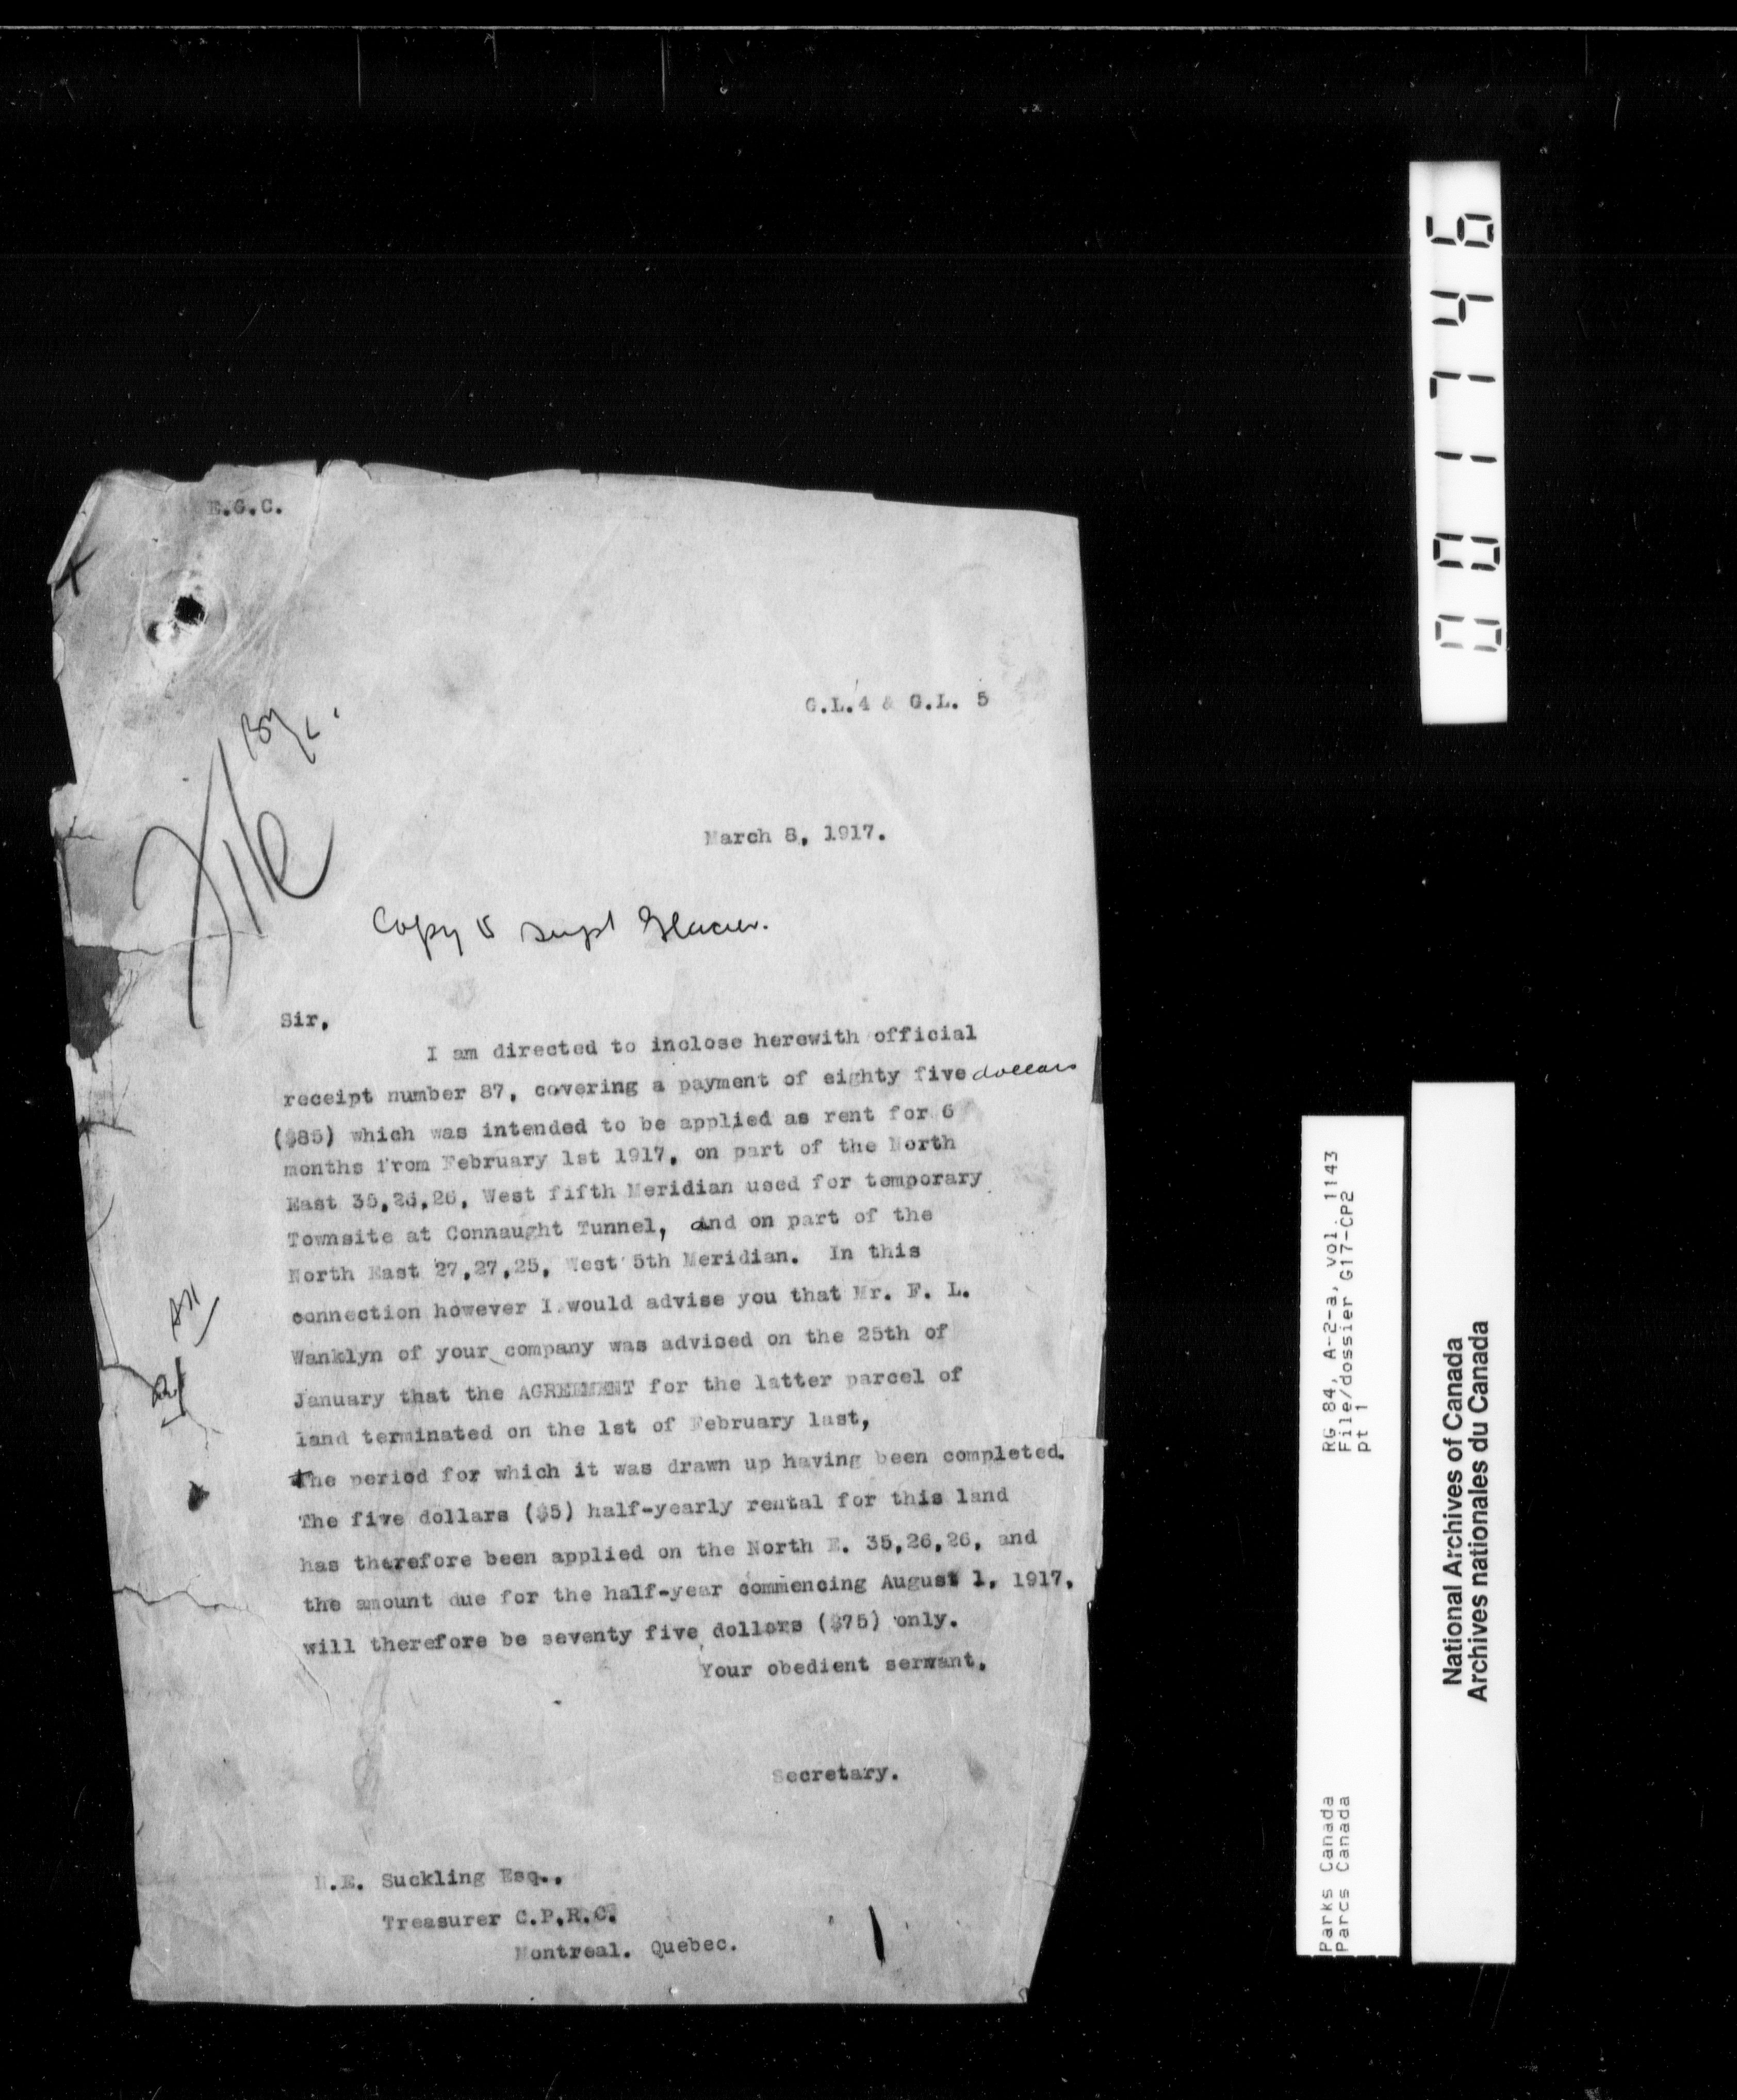 E.G.C.
G.L.4 & G.L. 5
File
March 8, 1917.
Copy to Supt Glacier.
Sir,
I am directed to inclose herewith official
receipt number 87, covering a payment of eighty five dollars
($85) which was intended to be applied as rent for 6
months from February 1st 1917, on part of the North
East 35,26,26, West fifth Meridian used for temporary
Townsite at Connaught Tunnel, and on part of the
North East 27,27,25, West 5th Meridian. In this
connection however I would advise you that Mr. F. L.
Wanklyn of your company was advised on the 25th of
January that the AGREEMENT for the latter parcel of
land terminated on the 1st of February last,
the period for which it was drawn up having been completed.
The five dollars ($5) half-yearly rental for this land
has therefore been applied on the North E. 35,26,26, and
the amount due for the half-year commencing August 1, 1917,
will therefore be seventy five dollars ($75) only.
Your obedient servant,
Secretary.
H.E. Suckling Esq.,
Treasurer C.P.R.C.
Montreal. Quebec.
001746
RG 84, A-2-a, vol. 1143
File/dossier G17-CP2
pt 1
Parks Canada
Parcs Canada
National Archives of Canada
Archives nationales du Canada